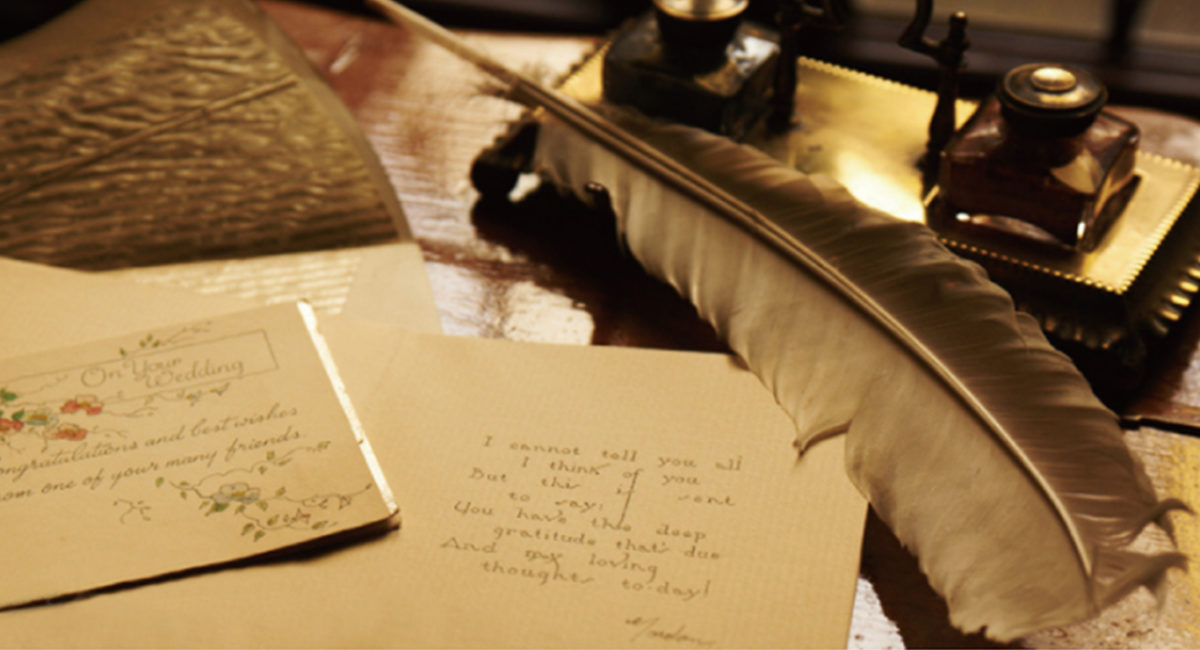 On Your
Wedding
ongratulations and best wishes
om one of your many friends.
I cannot tell you all
I think of you
But this is sent
to say:
You have the deep
gratitude that's due
And my loving
thoughts to-day!